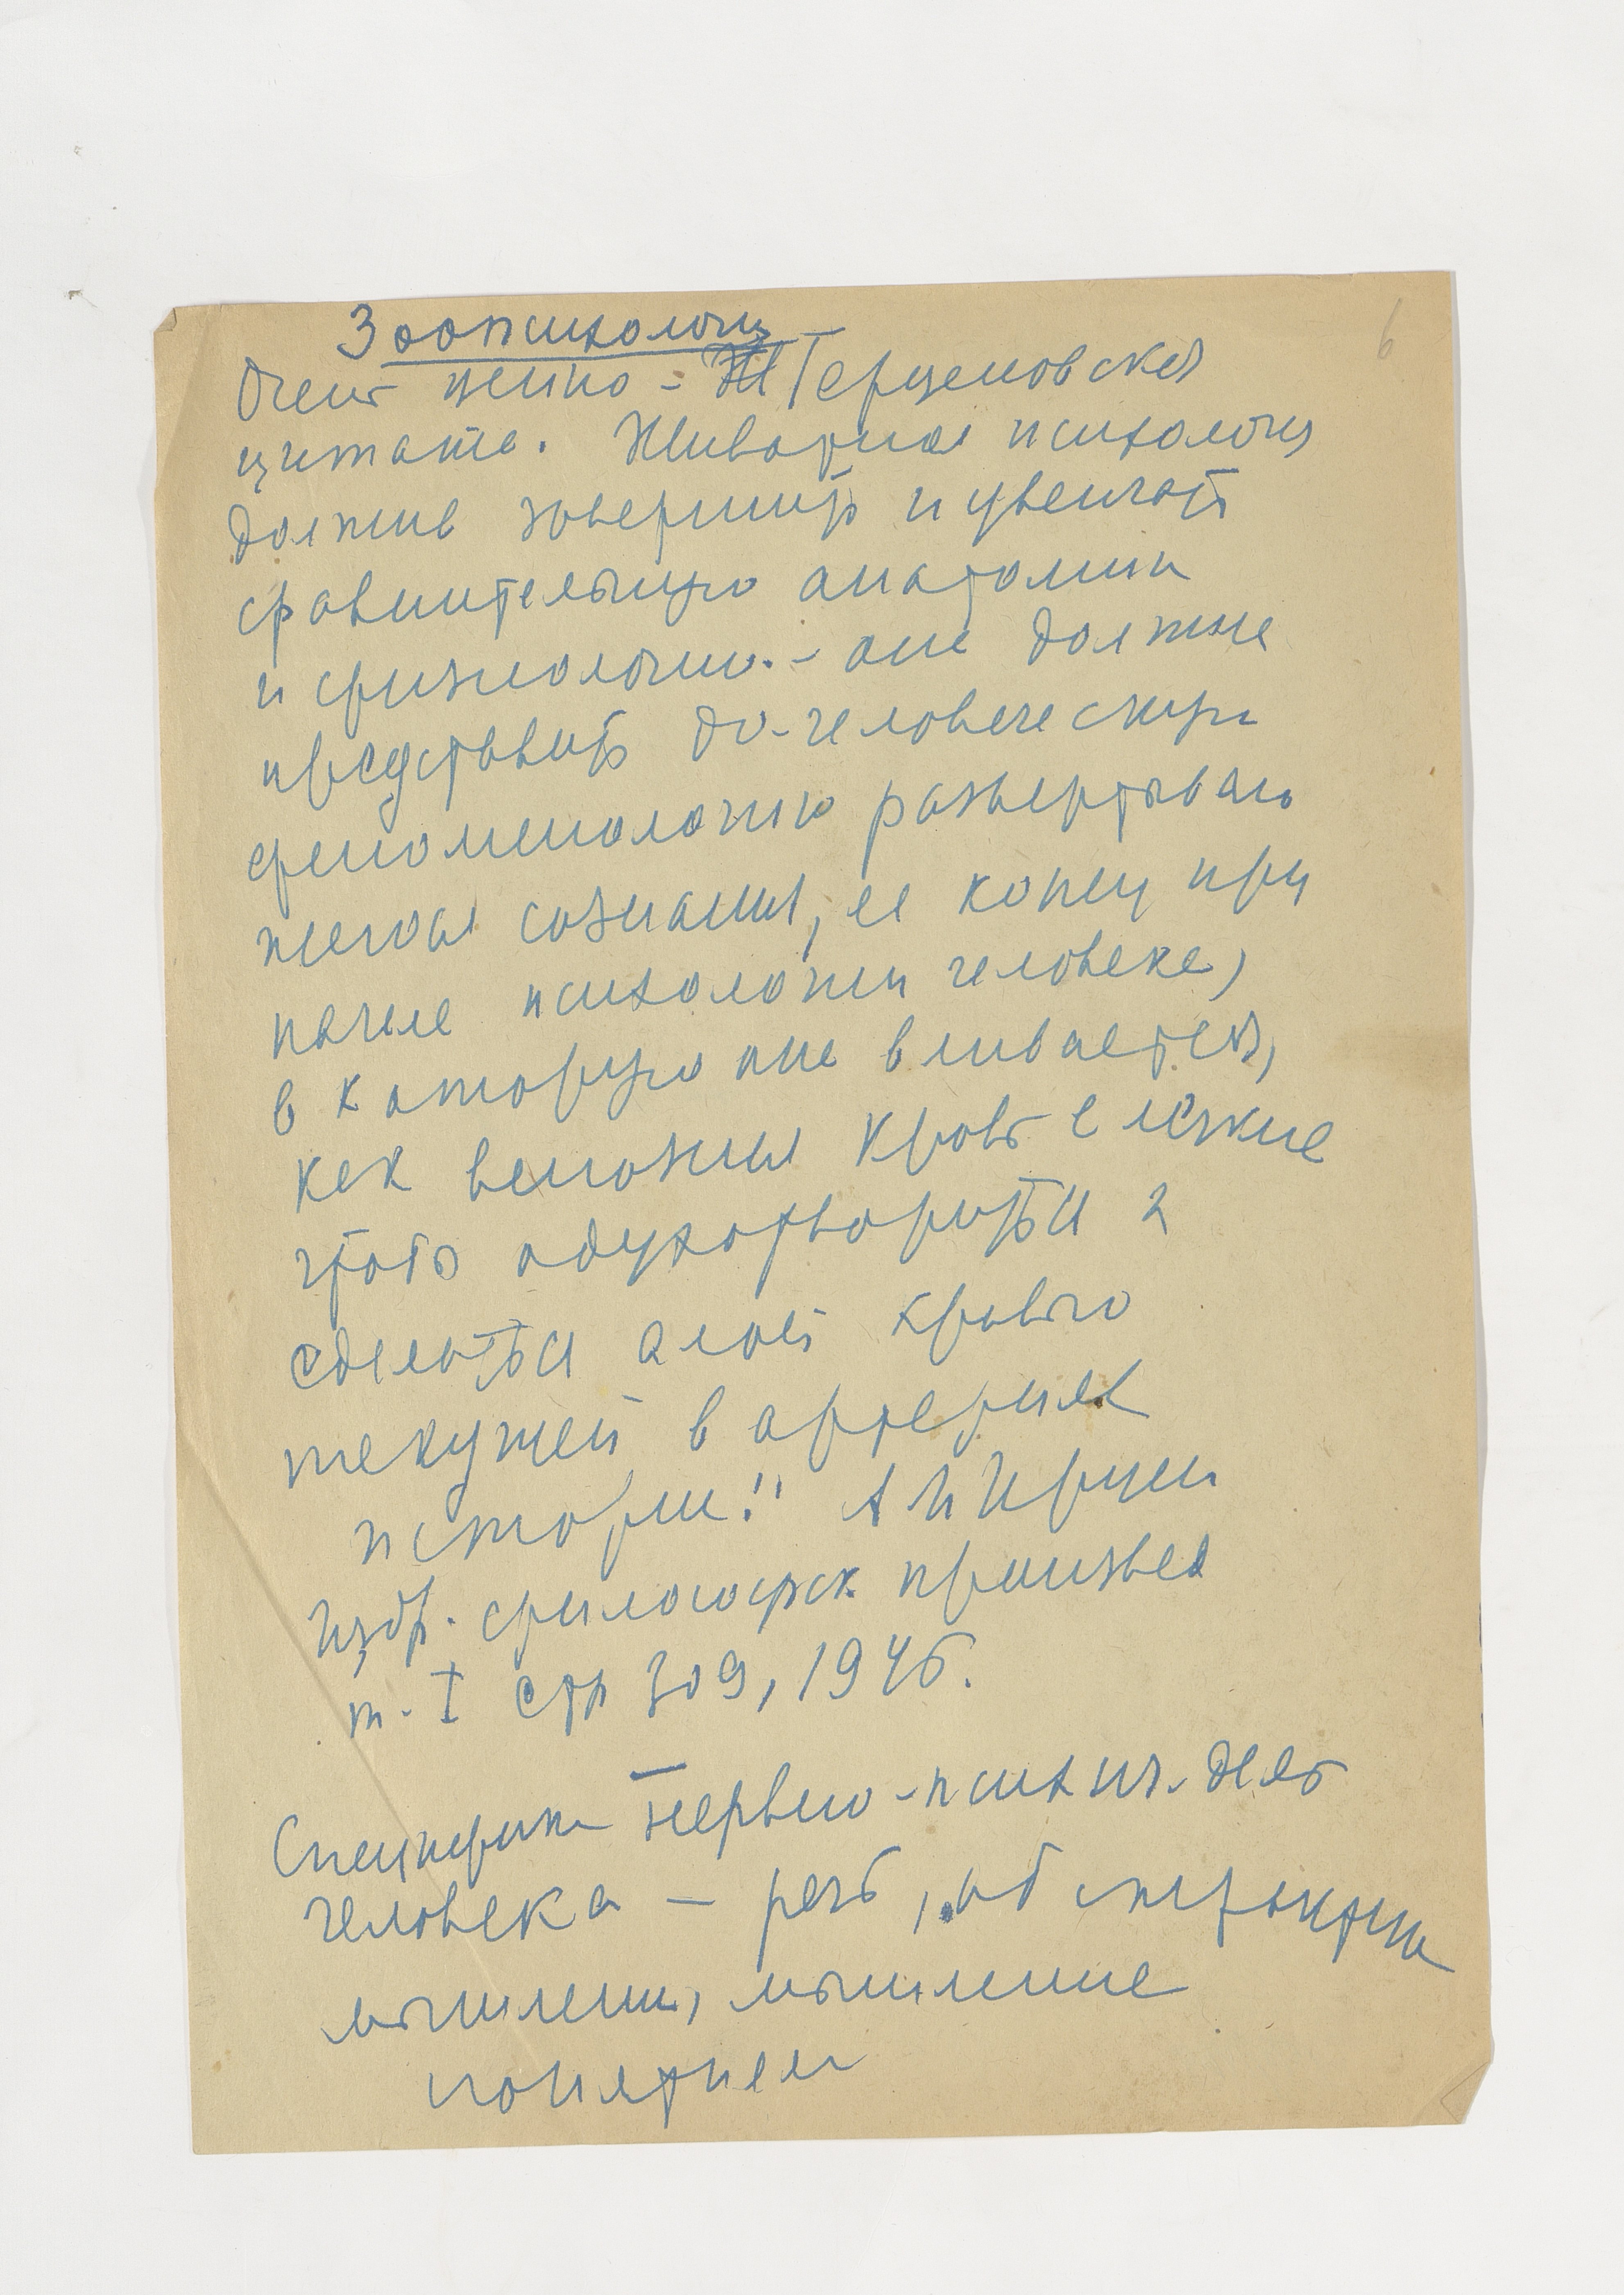 6
Зоопсихология
Очень ценно - Герценовская
цитата. Животная психология
должна завершить и увенчать
сравнительную анатомию
и физиологию. - она должна
представить до-человескую
феноменологию развертываю
щегося сознания, ее конец при
начале психологии человека,
в которую она вливается,
как венозная кровь в лёгкие
чтоб одухотвориться и
сделаться алой кровью
текущей в артериях
истории!" А И Герцен
Избр. философск. произвед
т. I стр 309, 1946.
Специфика нервно-психич. деят
человека — речь, абстракции
мышления, мышление
понятием